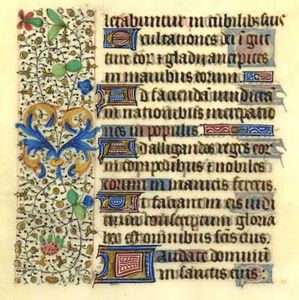 letabuntur in cubilibus suis
Exultationes dei i gut
ture eor et gladii ancipites
in manibus eorum.
Ad faciendā vindictā
in nationibus increpatio
nes in populis.
Ad alligandos reges eor
in compedibus et nobiles
eorum in manicis ferreis.
Ut faciant in eis iudi
ciū conscriptum gloria
hec est omnibus scīs eius.
Laudate dominū
in sanctis eius: